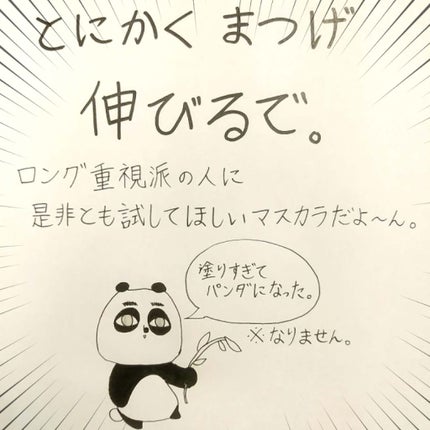 とにかく まつげ
伸びるで。
ロング重視派の人に
是非とも試してほしいマスカラだよ〜ん。
塗りすぎて
パンダになった。
※なりません。